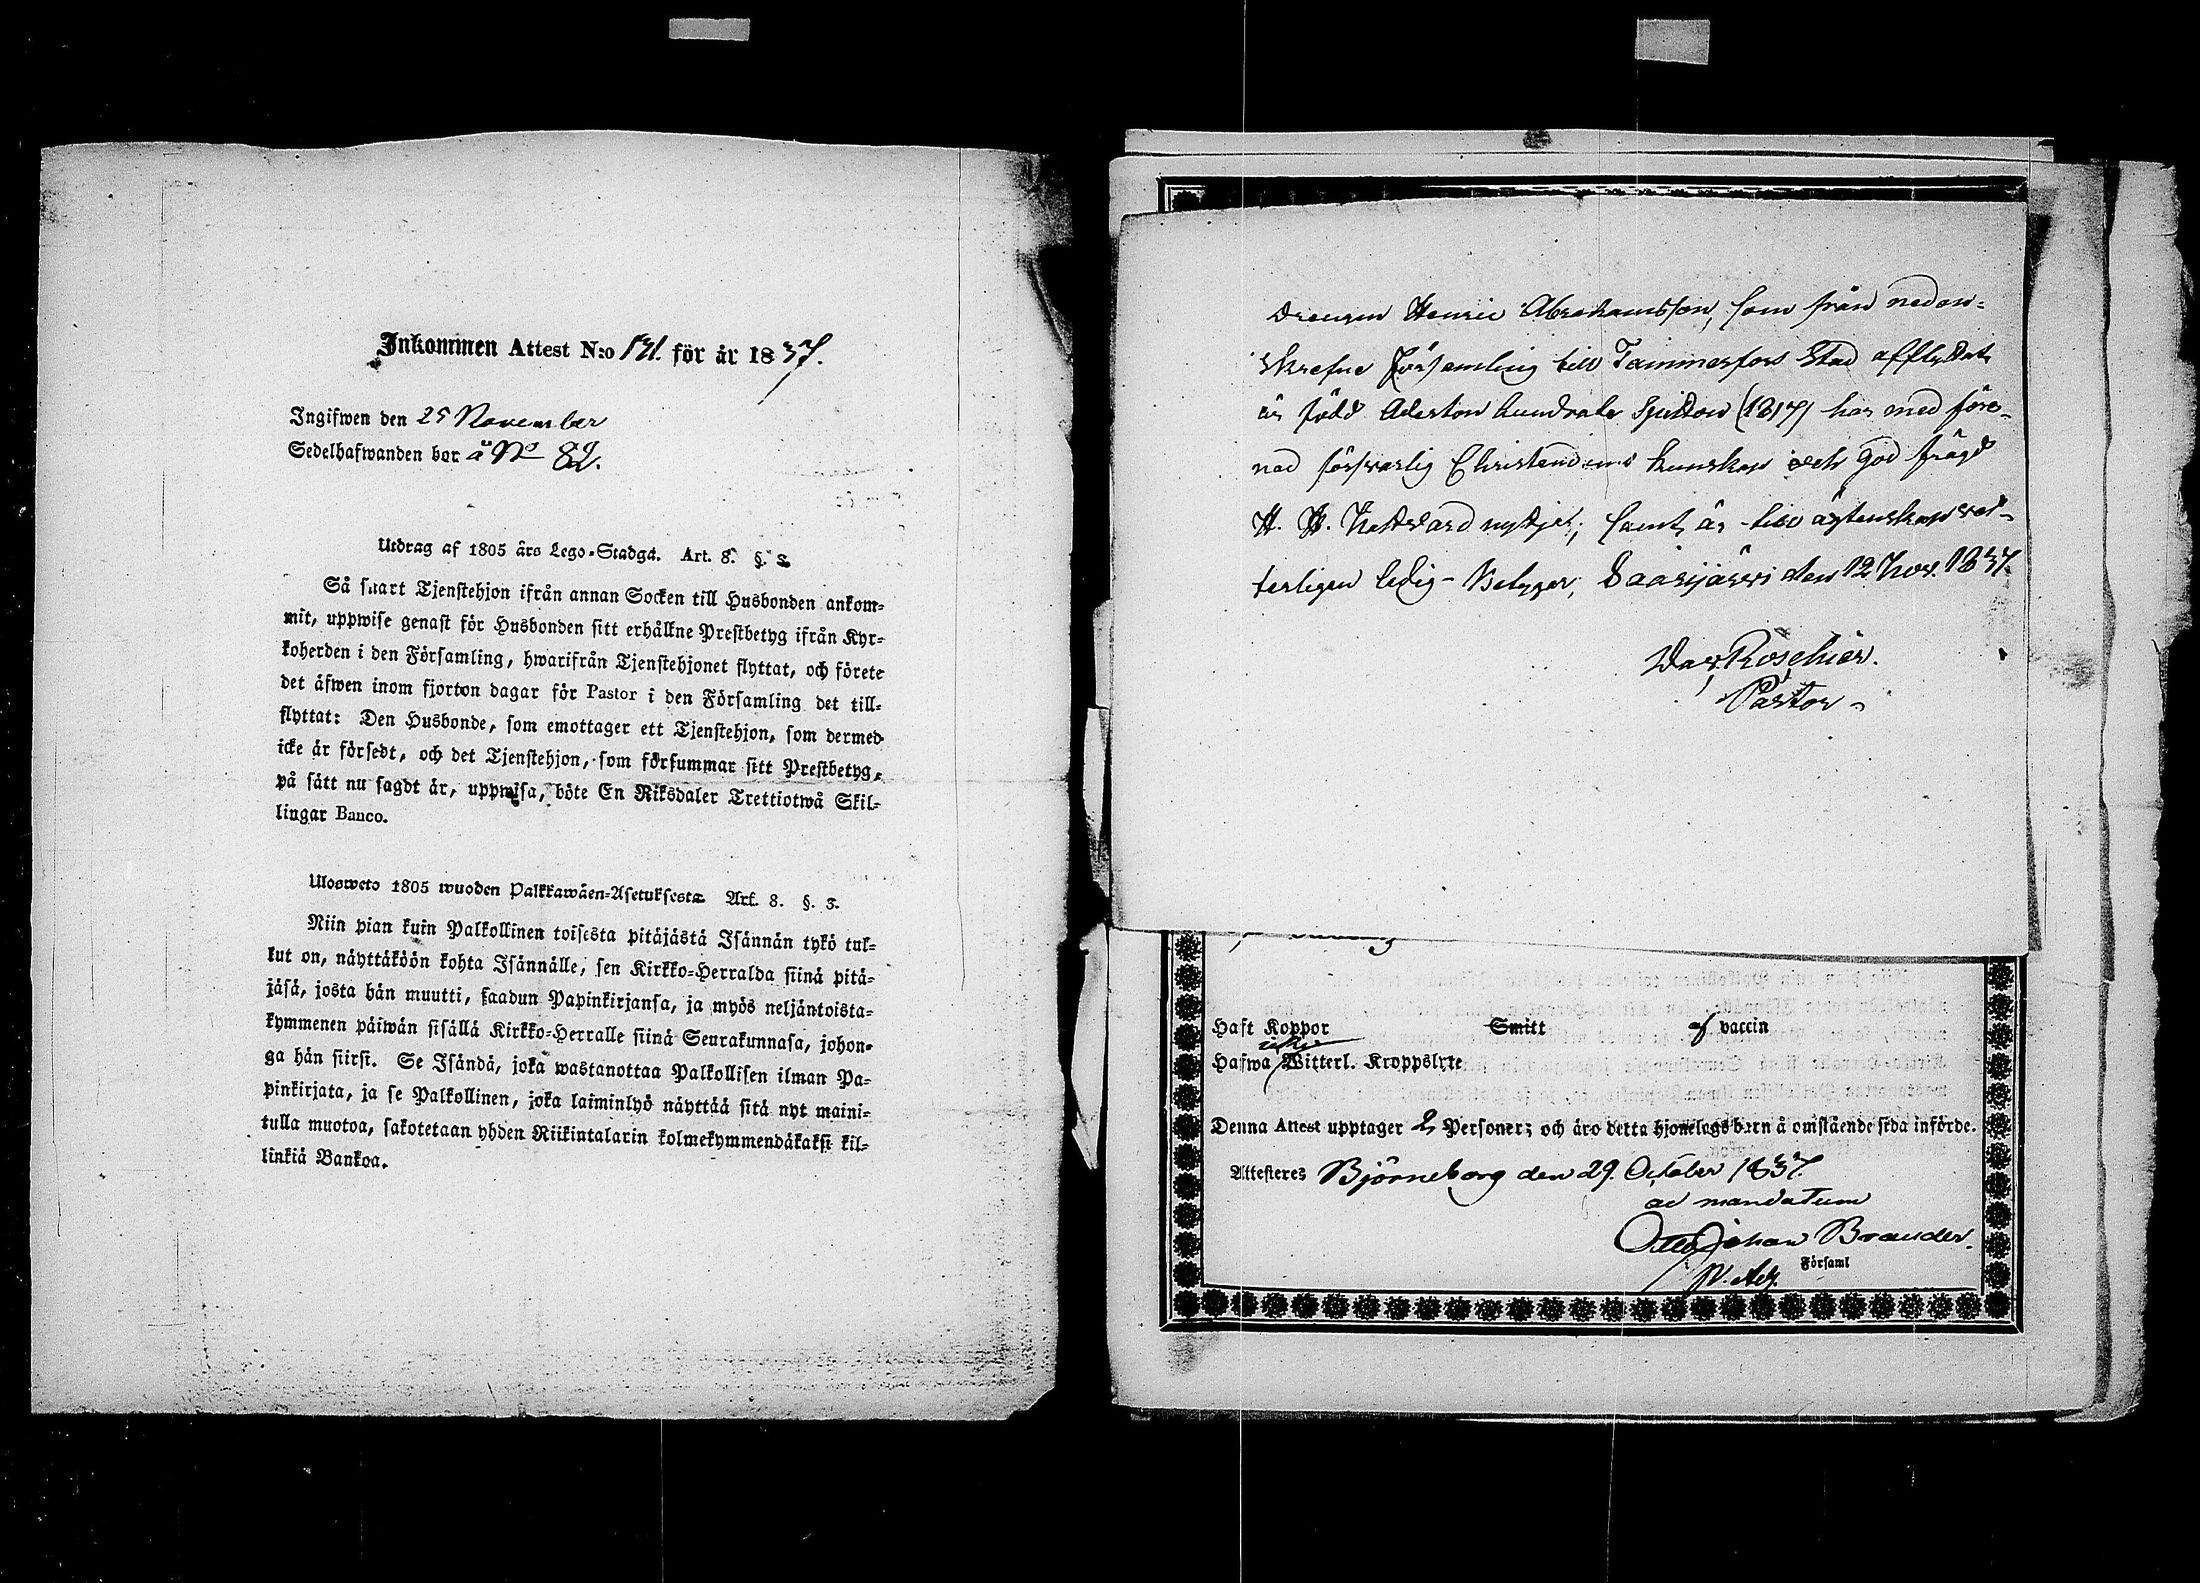 Inkommen Attest N:o 131. för år 1837.
Ingifwen den 25 November
Sedelhafwanden bor å No 82.
Utdrag af 1805 års Lego-Stadga. Art. 8. §. 3.
Så snart Tjenstehjon ifrån annan Socken till Husbonden ankom-
mit, uppwise genast för Husbonden sitt erhållne Prestbetyg ifrån Kyr-
koherden i den Församling, hwarifrån Tjenstehjonet flyttat, och förete
det äfwen inom fjorton dagar för Pastor i den Församling det till-
flyttat: Den Husbonde, som emottager ett Tjenstehjon, som dermed
icke är försedt, och det Tjenstehjon, som försummar sitt Prestbetyg,
på sätt nu sagdt är, uppwisa, böte En Riksdaler Trettiotwå Skil-
lingar Banco.
Ulosweto 1805 wuoden Palkkawäen-Asetuksesta Art. 8. §. 3.
Niin pian kuin Palkollinen toisesta pitäjästä Isännän tykö tul-
lut on, näyttäköön kohta Isännälle, sen Kirkko-Herralda siinä pitä-
jäsä, josta hän muutti, saadun Papinkirjansa, ja myös neljäntoista-
kymmenen päiwän sisällä Kirkko-Herralle siinä Seurakunnasa, johon-
ga hän siirsi. Se Isändä, joka wastanottaa Palkollisen ilman Pa-
pinkirjata, ja se Palkollinen, joka laiminlyö näyttää sitä nyt maini-
tulla muotoa, sakotetaan yhden Riikintalarin kolmekymmendäkaksi kil-
linkiä Bankoa.
Drengen Henric Abrahamsson, som från nedan-
skrefne Församling till Tammerfors Stad afflyttat
är född Aderton hundrade Sjutton (1817) har med före-
nad försvarlig Christendoms kunskap och god frägd
H. H. Nattvard nyttjat, samt är till ägtenskap veter-
terligen ledig - Betygar, Saarijärvi den 12 Nov. 1837.
Dav. Roschier.
Pastor
Haft Koppor Smitt af vaccin
icke
Hafwa Witterl. Kroppslyte
Denna Attest upptager 2 Personer; och äro detta hjonelags barn å omstående sida införde.
Attesteres Björneborg den 29. October 1837.
ad mandatum
Otto Johan Brander.
Församl
V. Adj.